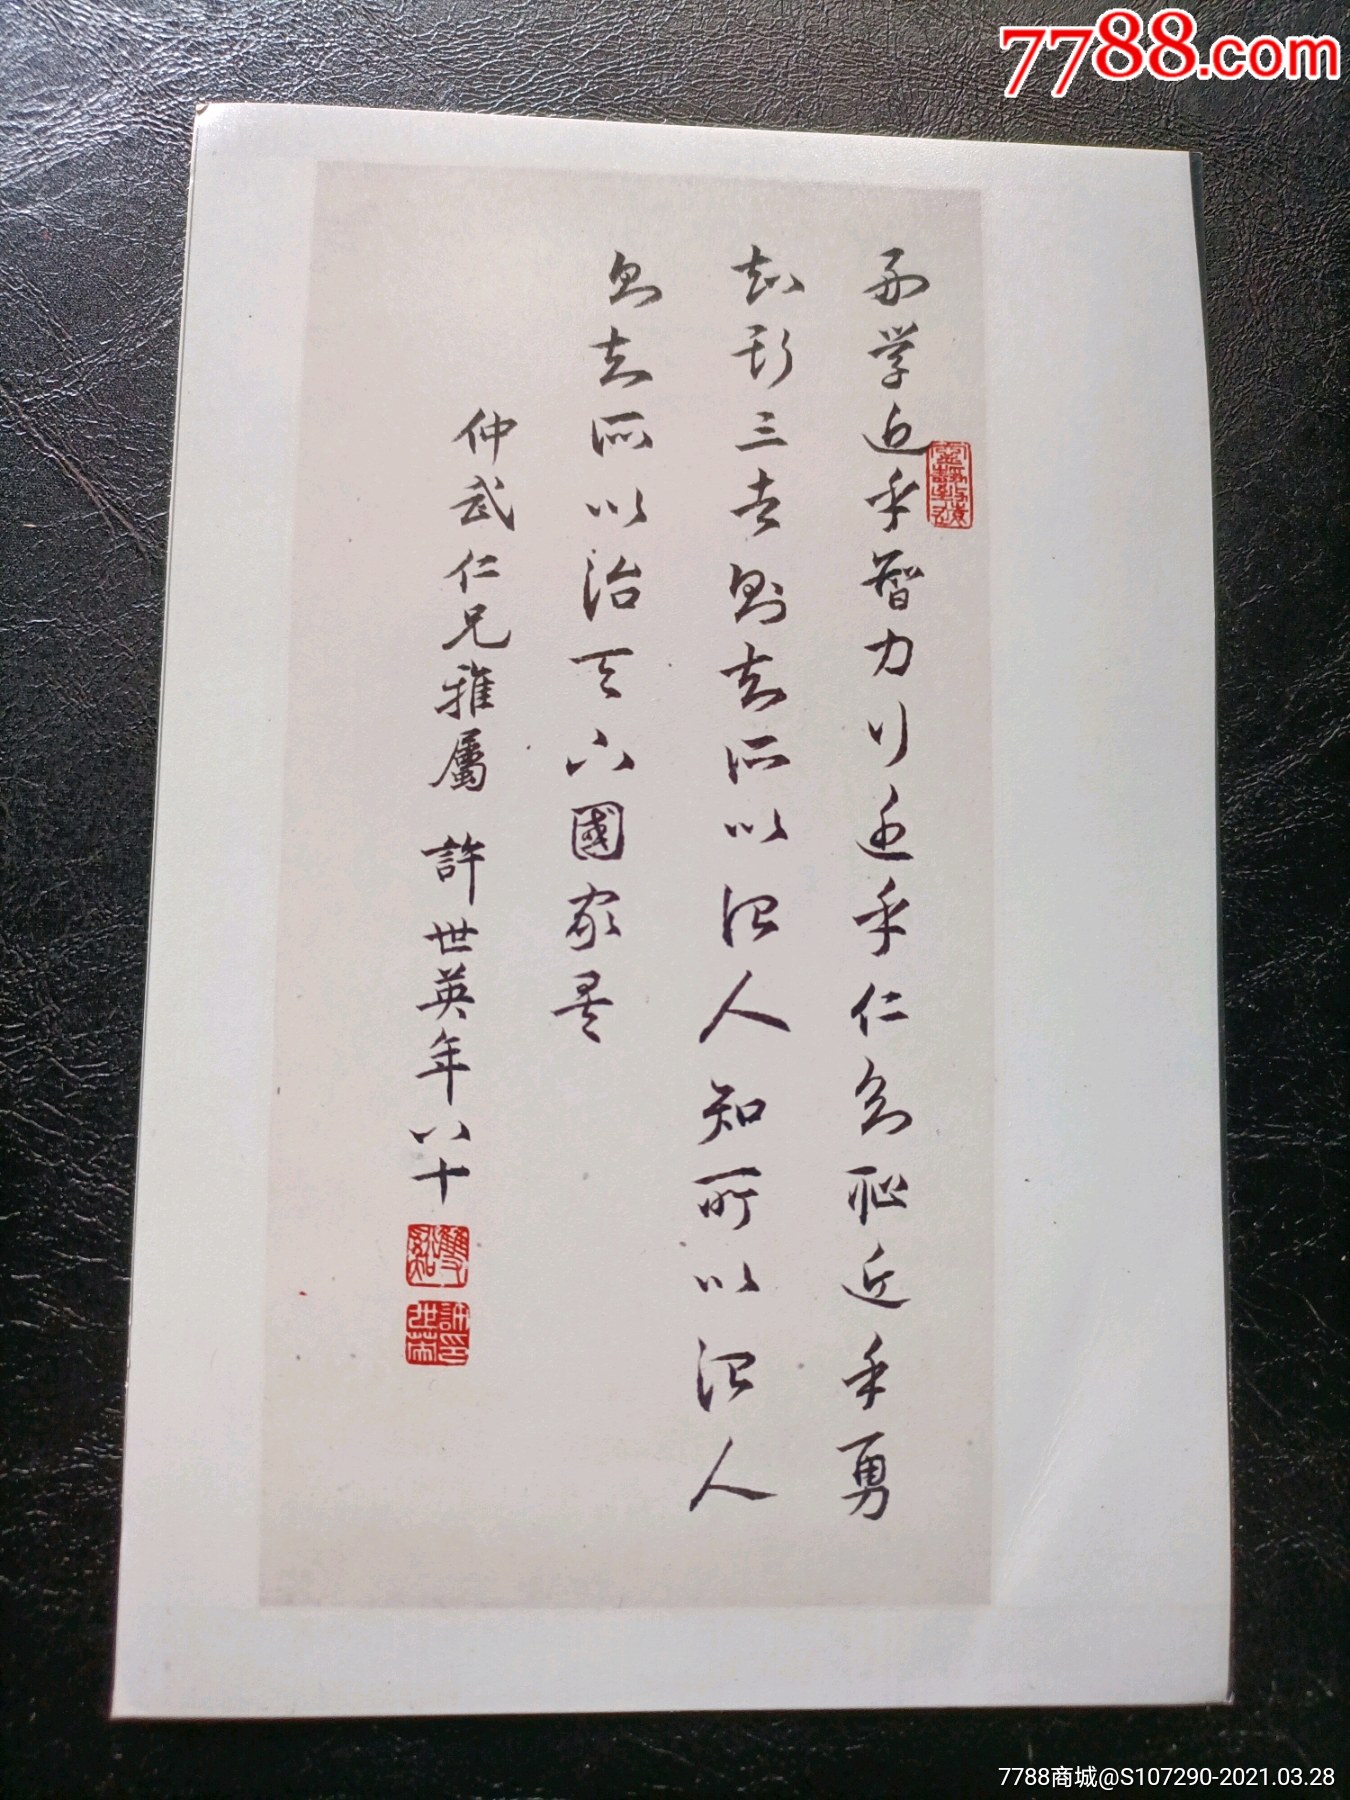 7788.com
好学近乎智力行近乎仁知耻近乎勇
知斯三者則知所以治人知所以治人
則知所以治天下國家矣
仲武仁兄雅屬 許世英年八十
許世英印
7788商城@S107290-2021.03.28